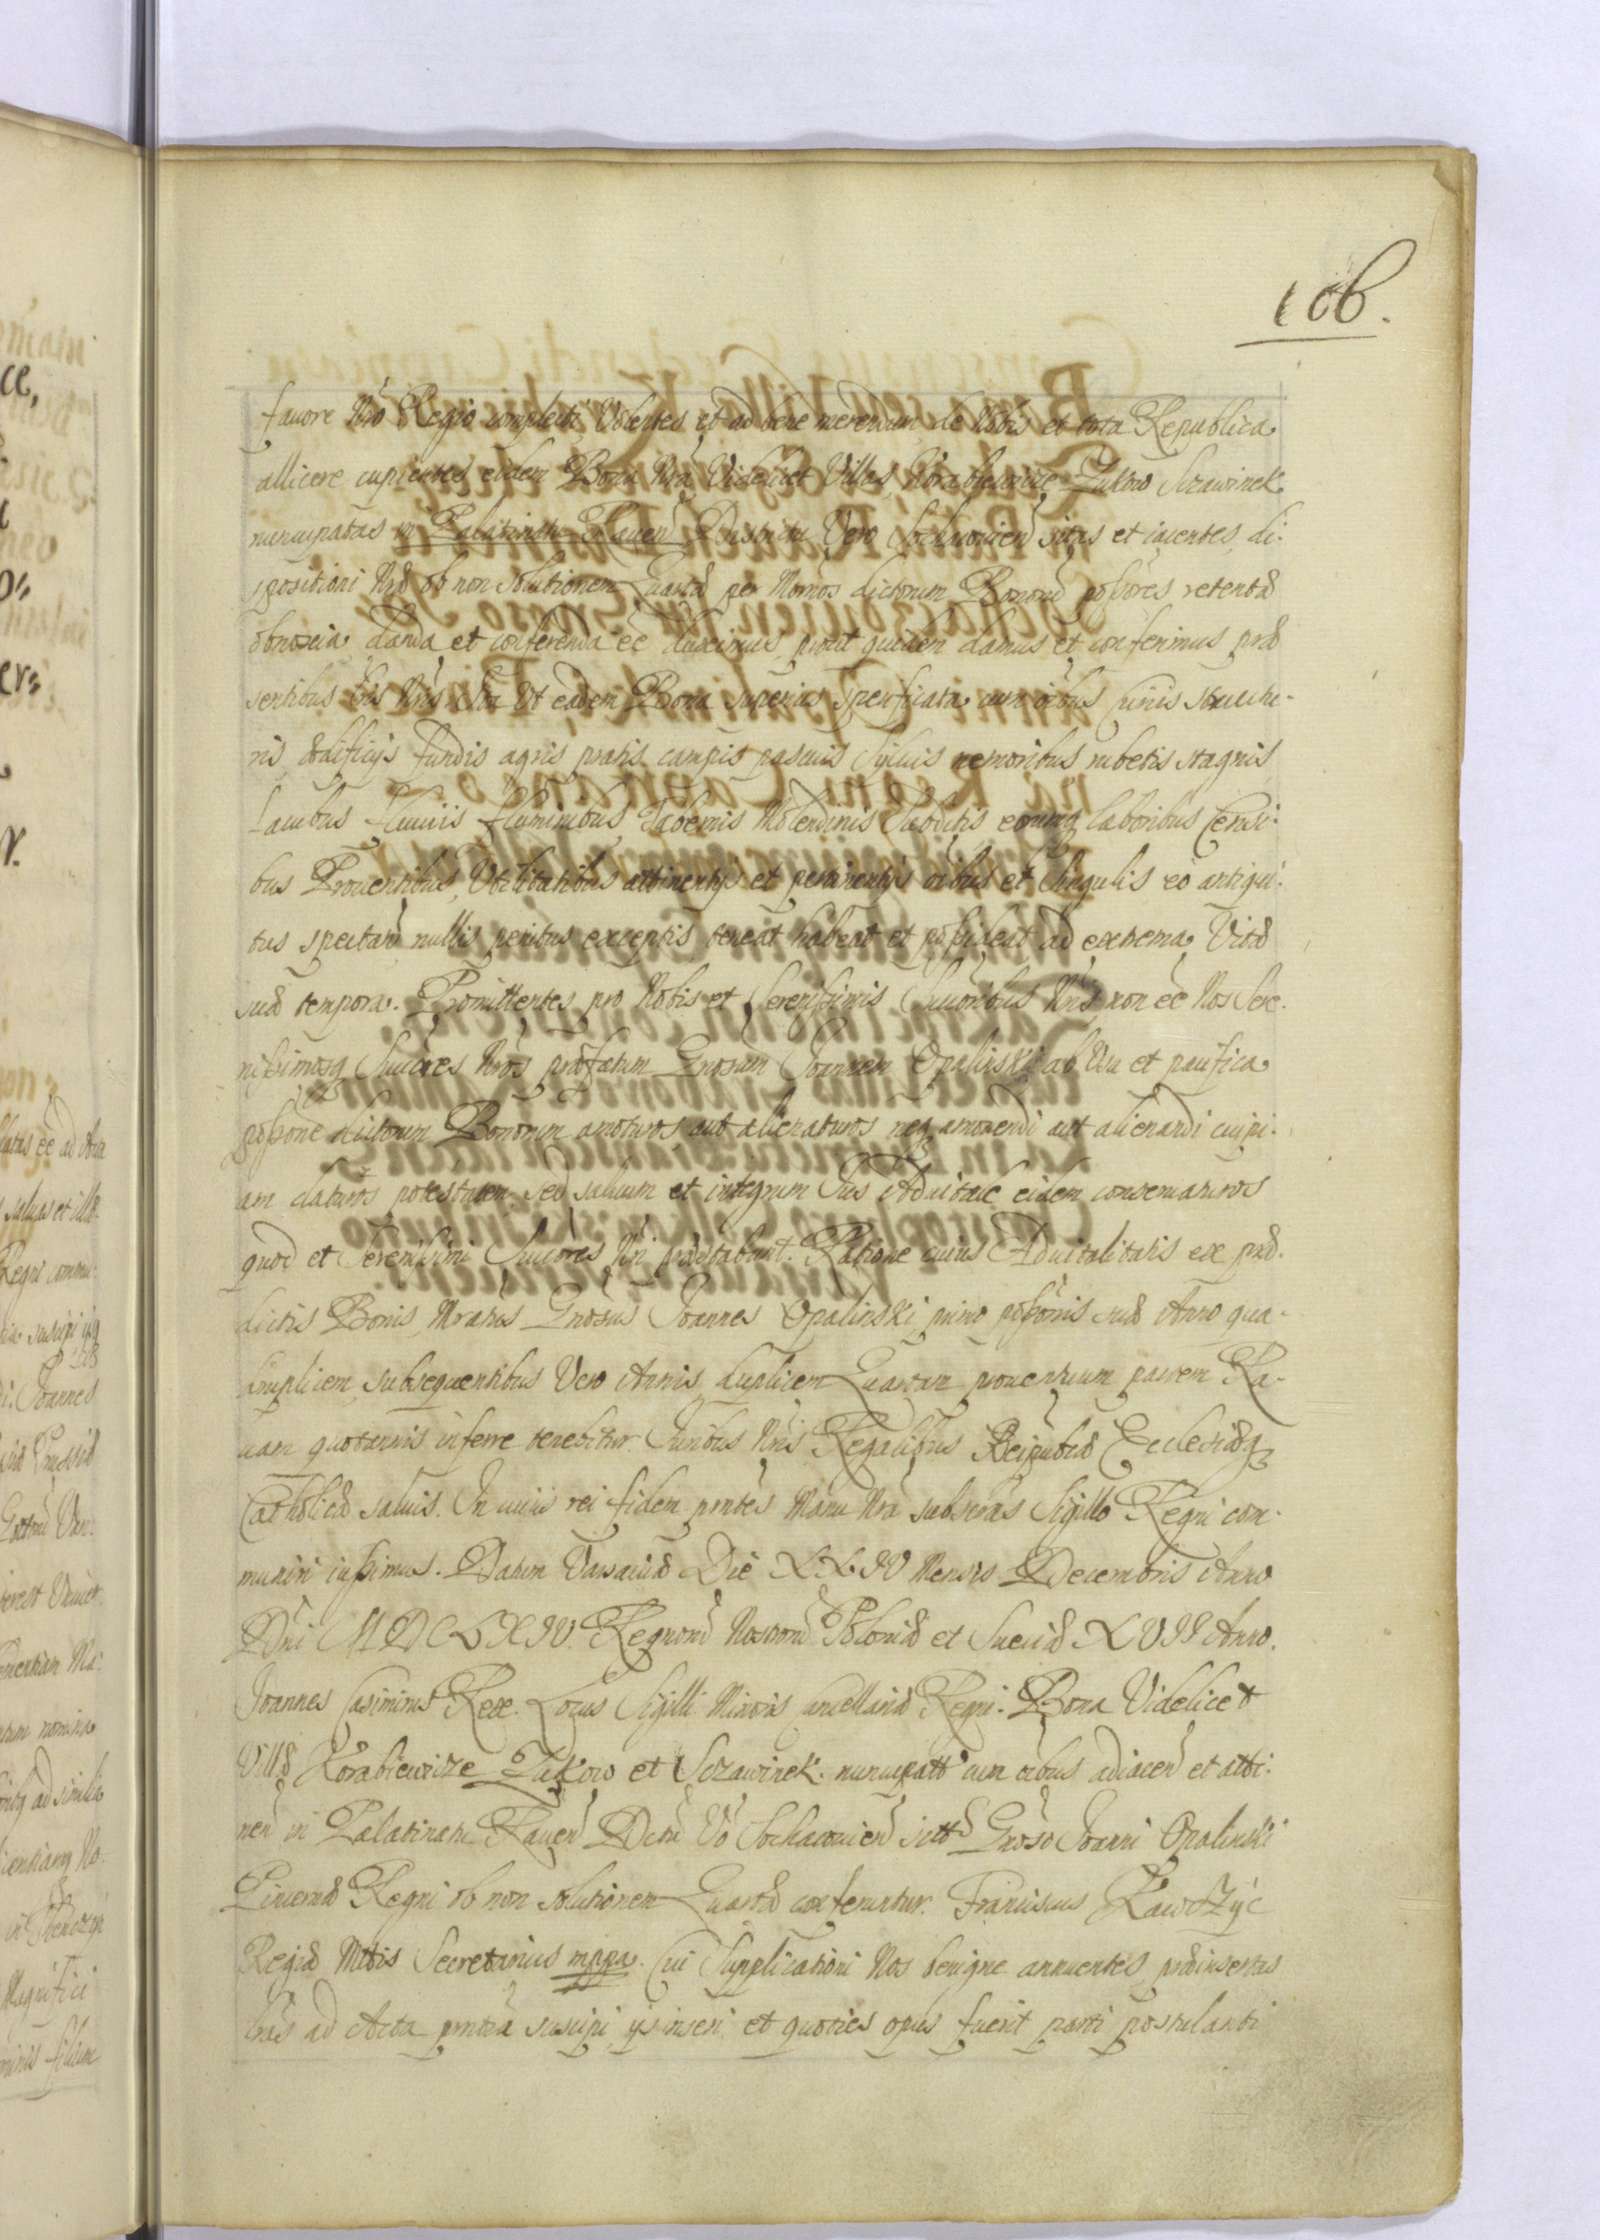 106.
favore Nro Regio complecti Volentes et ad bene merendum de Nobis et tota Republica
allicere cupientes eidem Bona Nra Videlicet Villas Korabiewice Zukow Szawinek
nuncupatas in Palatinatu Raven Districtu Vero Sochacovien sitas et iacentes, di-
spositioni Nræ ob non solutionem Quartæ per Momos dictorum Bonorū possores retentæ
obnoxia danda et conferenda ee duximus, prout quidem damus et conferimus præ
sentibus Lris Nris ita Ut eadem Bona superius specificata cum oibus structu-
ris ædificijs fundis agris pratis campis pascuis Sylvis nemoribus rubetis stagnis
Lacubus fluvijs fluminibus Tabernis Molendinis Subditis eorumq laboribus Censi-
bus Proventibus, Utilitatibus attinentijs et pertinentijs oibus et singulis eo antiqui-
tus spectan nullis penitus exceptis teneat habeat et possideat ad extrema Vitæ
suæ tempora. Promittentes pro Nobis et Serenissimis Succoribus Nris, non ee Nos Sere-
nissimosq Succores Nros præfatum Gnosum Joannem Opalinski ab Usu et pacifica
possone dictorum Bonorum amoturos aut alienaturos neq amovendi aut alienandi cuipi-
am daturos potestatem sed salvum et integrum Jus Advitale eidem conservaturos
quod et Serenissimi Succores Nri præstabunt. Ratione cuius Advitalitatis ex præ-
dictis Bonis, Mratus Gnosus Joannes Opalinski, primo possonis suæ Anno qua-
druplicem, subsequentibus Vero Annis, duplicem Quartam proventuum partem Ra-
vam quotannis inferre tenebitur. Juribus Nris Regalibus Reipubcæ Ecclesiæq
Catholicæ salvis. In cuius rei fidem pntes Manu Nra subscras Sigillo Regni com-
muniri iussimus. Datum Varsaviæ Die XXIV Mensis Decembris Anno
Dni MDCLXIV. Regnorū Nostrorū Poloniæ et Sueciæ XVII Anno.
Joannes Casimirus Rex. Locus Sigilli Minoris Cancellariæ Regni. Bona Videlicet
Villæ Korabiewize Zukow et Szawinek. nuncupatt cum oibus adiacen et atti-
nen in Palatinatu Raven Dctu Vo Sochacovien sitt Gnoso Joanni Opalinski
Pincernæ Regni ob non solutionem Quartæ conferuntur. Franciscus
Regiæ Mttis Secretarius mppa. Cui Supplicationi Nos benigne annuentes præinsertas
Lras ad Acta pntia suscipi, ijs inseri, et quoties opus fuerit parti postulanti